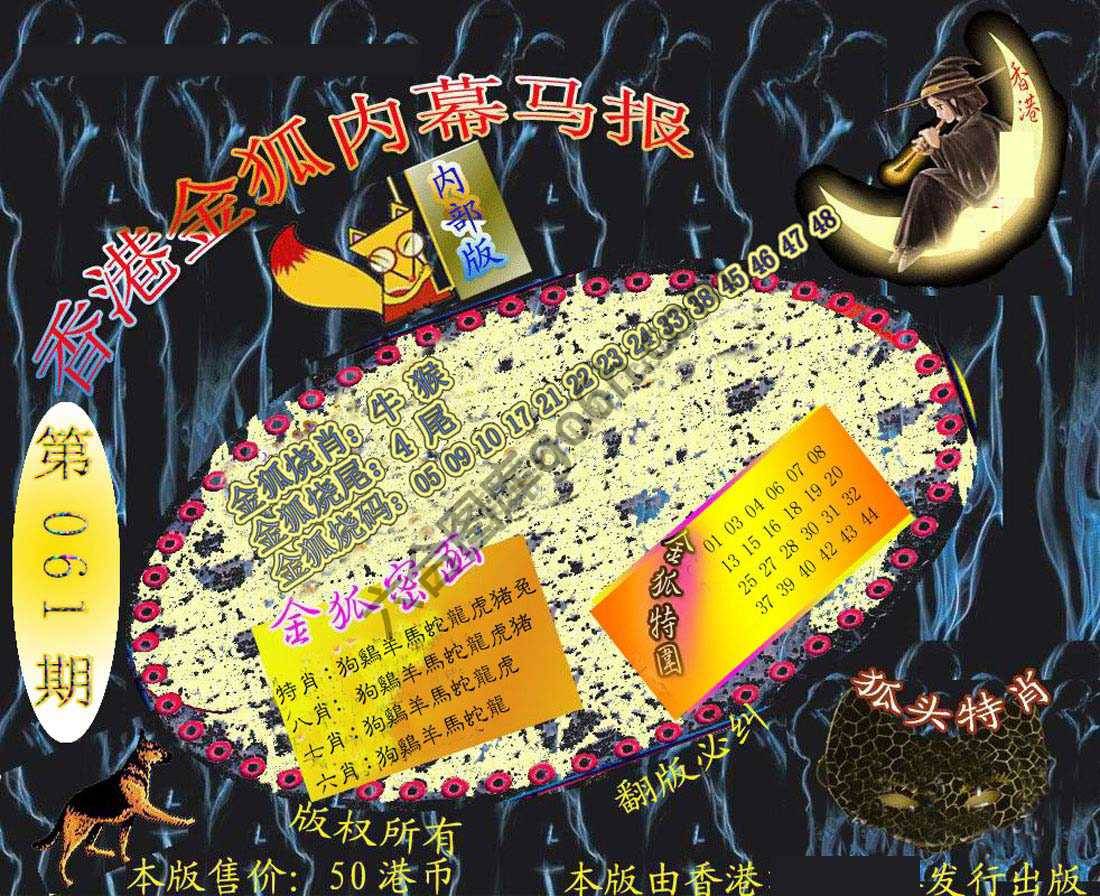 香港金狐内幕马报
香港
内部版
第091期
金狐烧肖：牛猴
金狐烧尾：4尾
金狐烧码：05 09 10 17 21 22 23 24 33 38 45 46 47 48
金狐密画
特肖：狗鷄羊馬蛇龍虎猪兔
八肖：狗鷄羊馬蛇龍虎猪
七肖：狗鷄羊馬蛇龍虎
六肖：狗鷄羊馬蛇龍
金狐特圍
01 03 04 06 07 08
13 15 16 18 19 20
25 27 28 30 31 32
37 39 40 42 43 44
狐头特肖
翻版必纠
版权所有
本版售价：50港币
本版由香港
发行出版